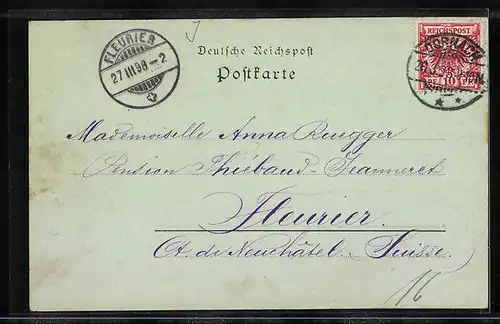 FLEURIER
27 III 98 - 2
REICHSPOST
10
DORNACH
Deutsche Reichspost
Postkarte
Mademoiselle Anna Ruegger
Pension Thiébaud-Jeanneret
Fleurier.
Ct. de Neuchâtel. Suisse.